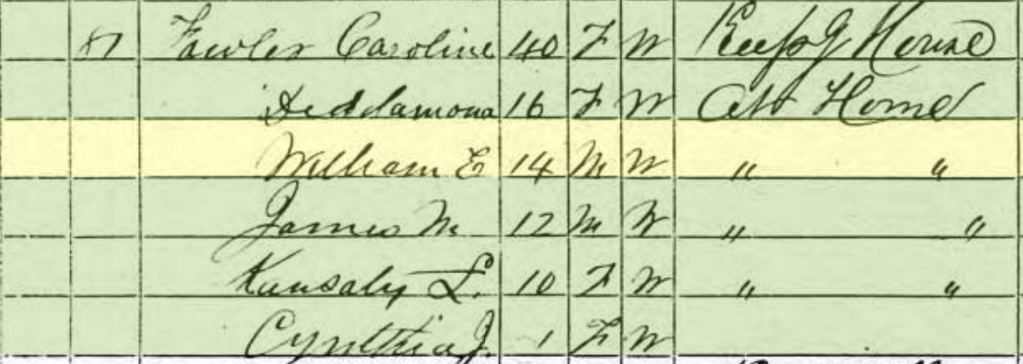 81 Fowler Caroline 40 F W Keep'g House
Deddamona 16 F W At Home
William E 14 M W " "
James M 12 M W " "
Kansaly L. 10 F W " "
Cynthia J. 1 F W